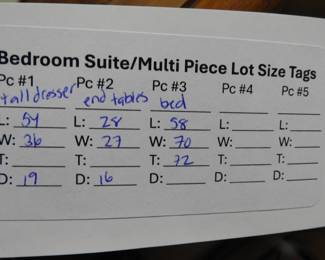 Bedroom Suite/Multi Piece Lot Size Tags
Pc #1 Pc #2 Pc #3 Pc #4 Pc #5
tall dresser end tables bed
L: 54 L: 28 L: 58 L: L:
W: 36 W: 27 W: 70 W: W:
T: T: T: 72 T: T:
D: 19 D: 16 D: D: D: